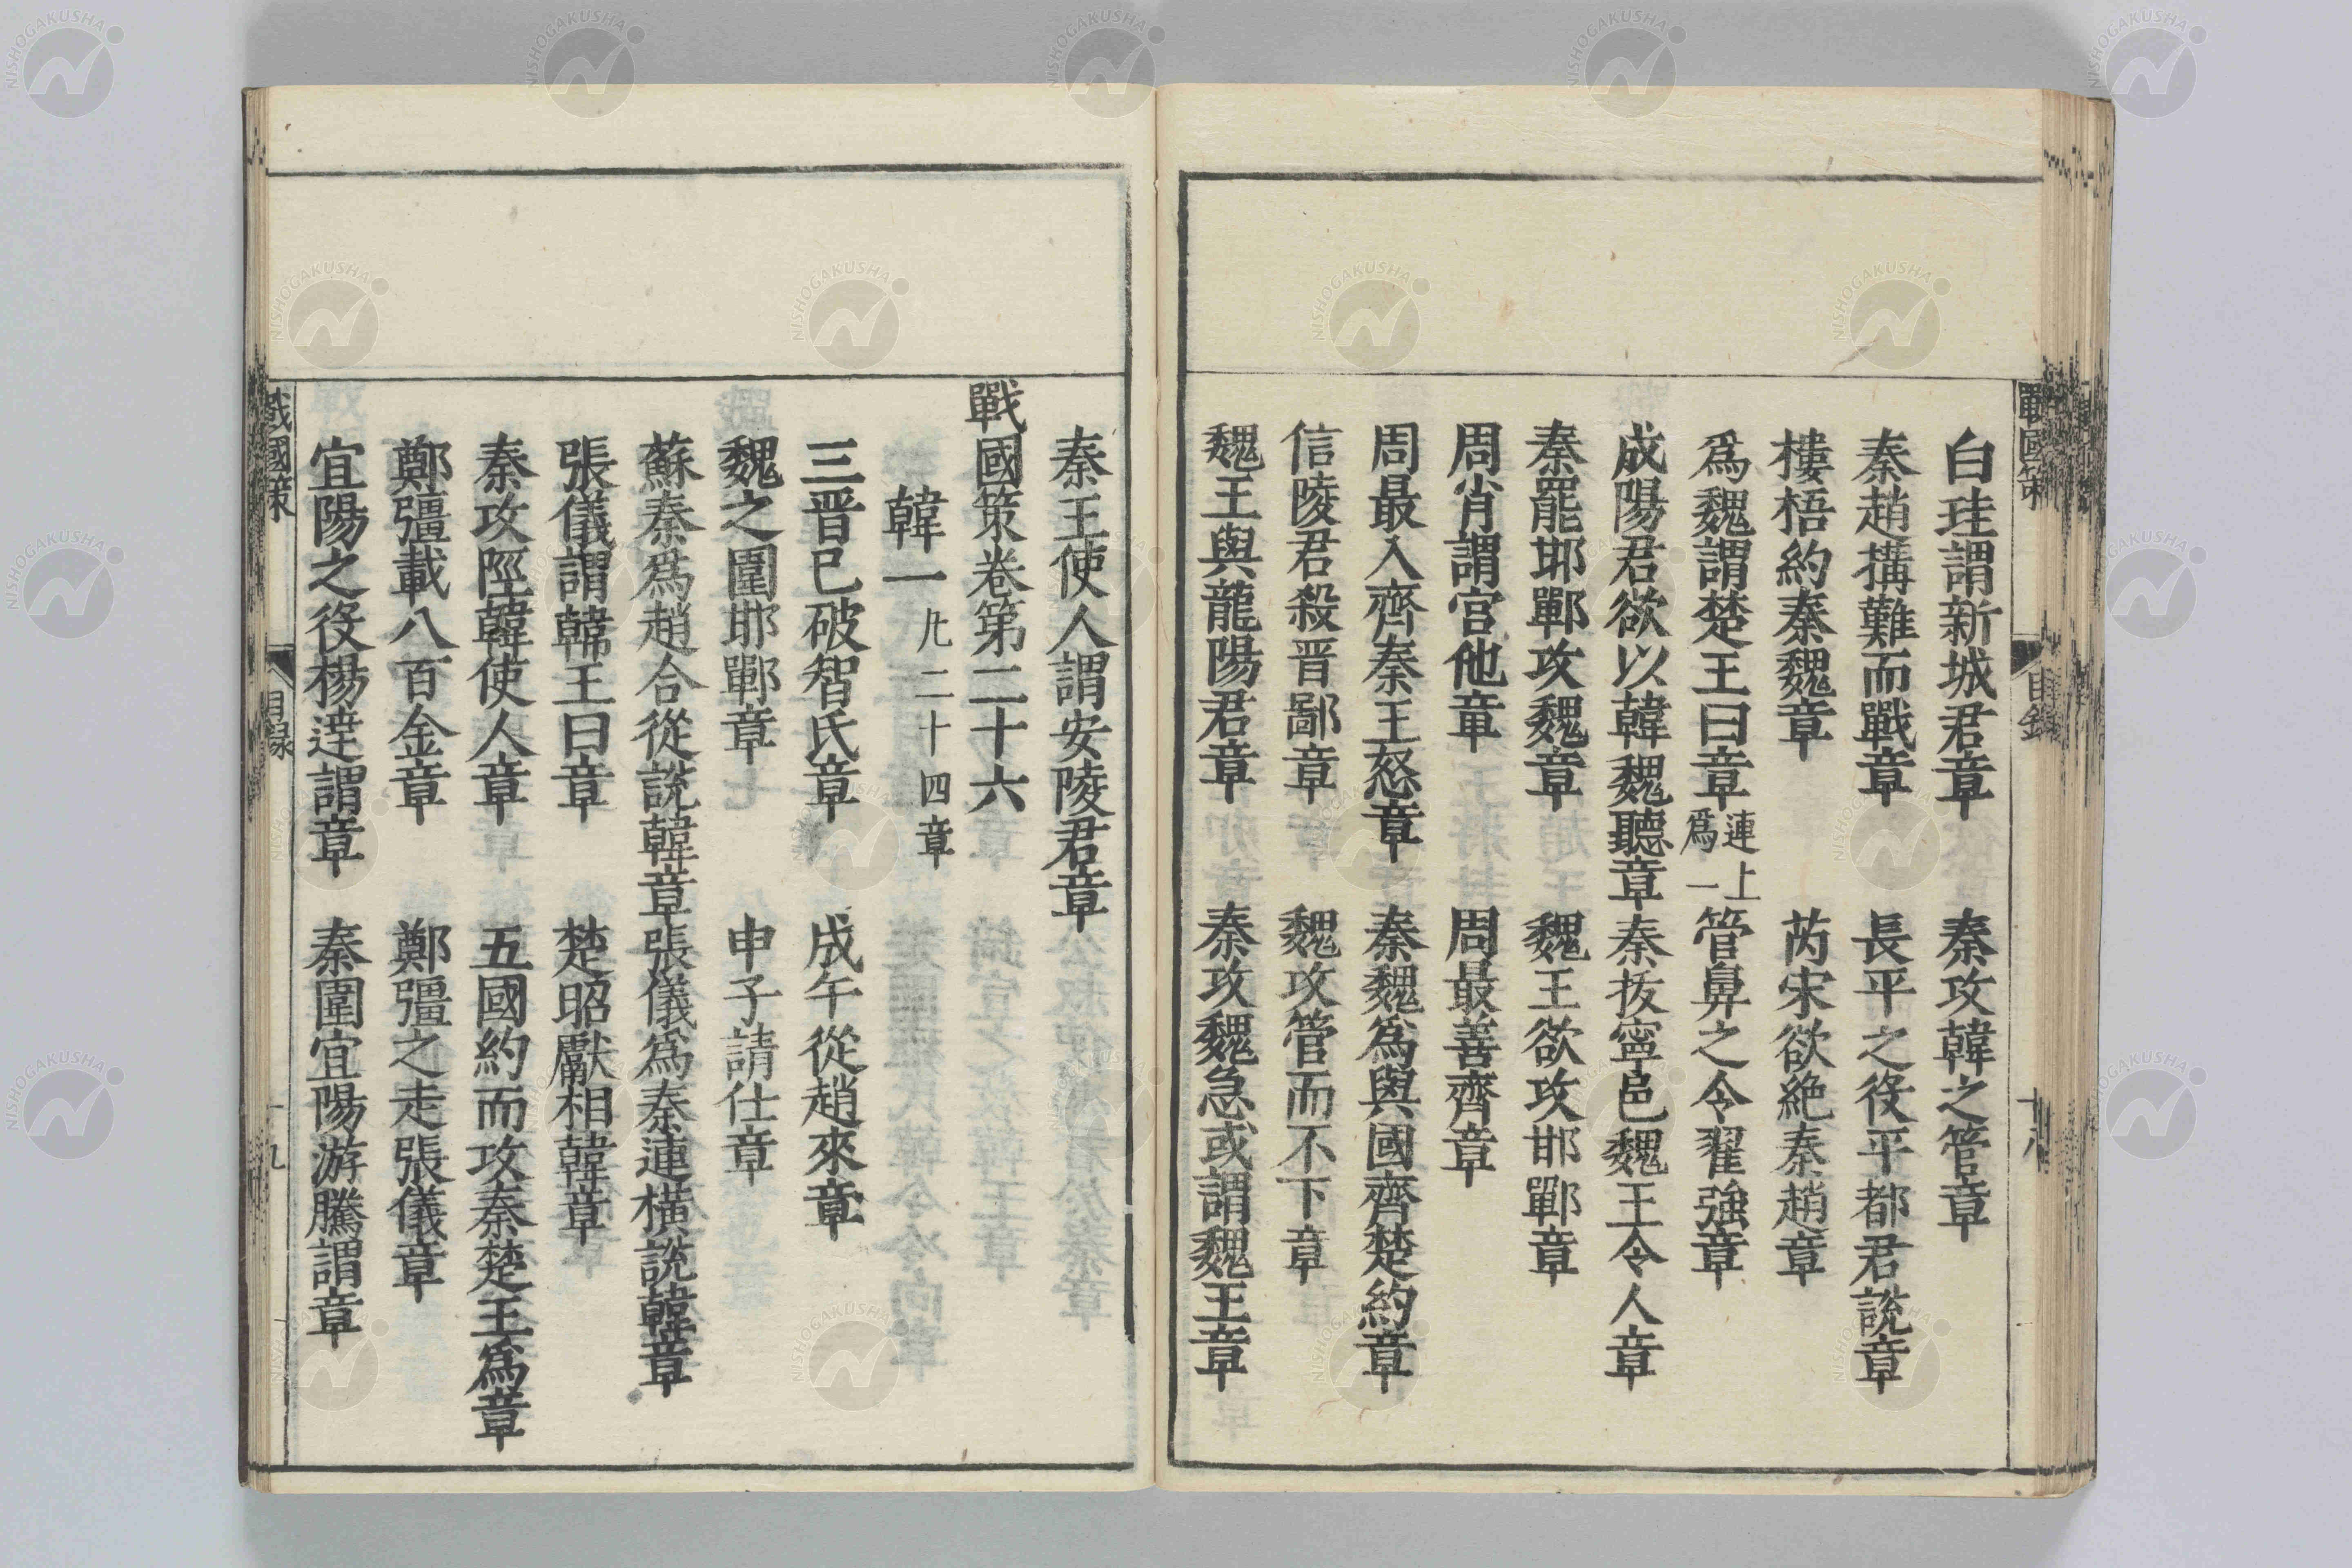 戰國策 目錄 十八
白珪謂新城君章 秦攻韓之管章
秦趙搆難而戰章 長平之役平都君說章
樓梧約秦魏章 芮宋欲絶秦趙章
爲魏謂楚王曰章 連上爲一 管鼻之令翟強章
成陽君欲以韓魏聽章 秦拔寧邑魏王令人章
秦罷邯鄲攻魏章 魏王欲攻邯鄲章
周肖謂宮他章 周最善齊章
周最入齊秦王怒章 秦魏爲與國齊楚約章
信陵君殺晋鄙章 魏攻管而不下章
魏王與龍陽君章 秦攻魏急或謂魏王章
秦王使人謂安陵君章
戰國策卷第二十六
韓一 凡二十四章
三晋已破智氏章 成午從趙來章
魏之圍邯鄲章 申子請仕章
蘇秦爲趙合從說韓章 張儀爲秦連橫說韓章
張儀謂韓王曰章 楚昭獻相韓章
秦攻陘韓使人章 五國約而攻秦楚王爲章
鄭彊載八百金章 鄭彊之走張儀章
宜陽之役楊達謂章 秦圍宜陽游騰謂章
戰國策 目錄 十九
NISHOGAKUSHA